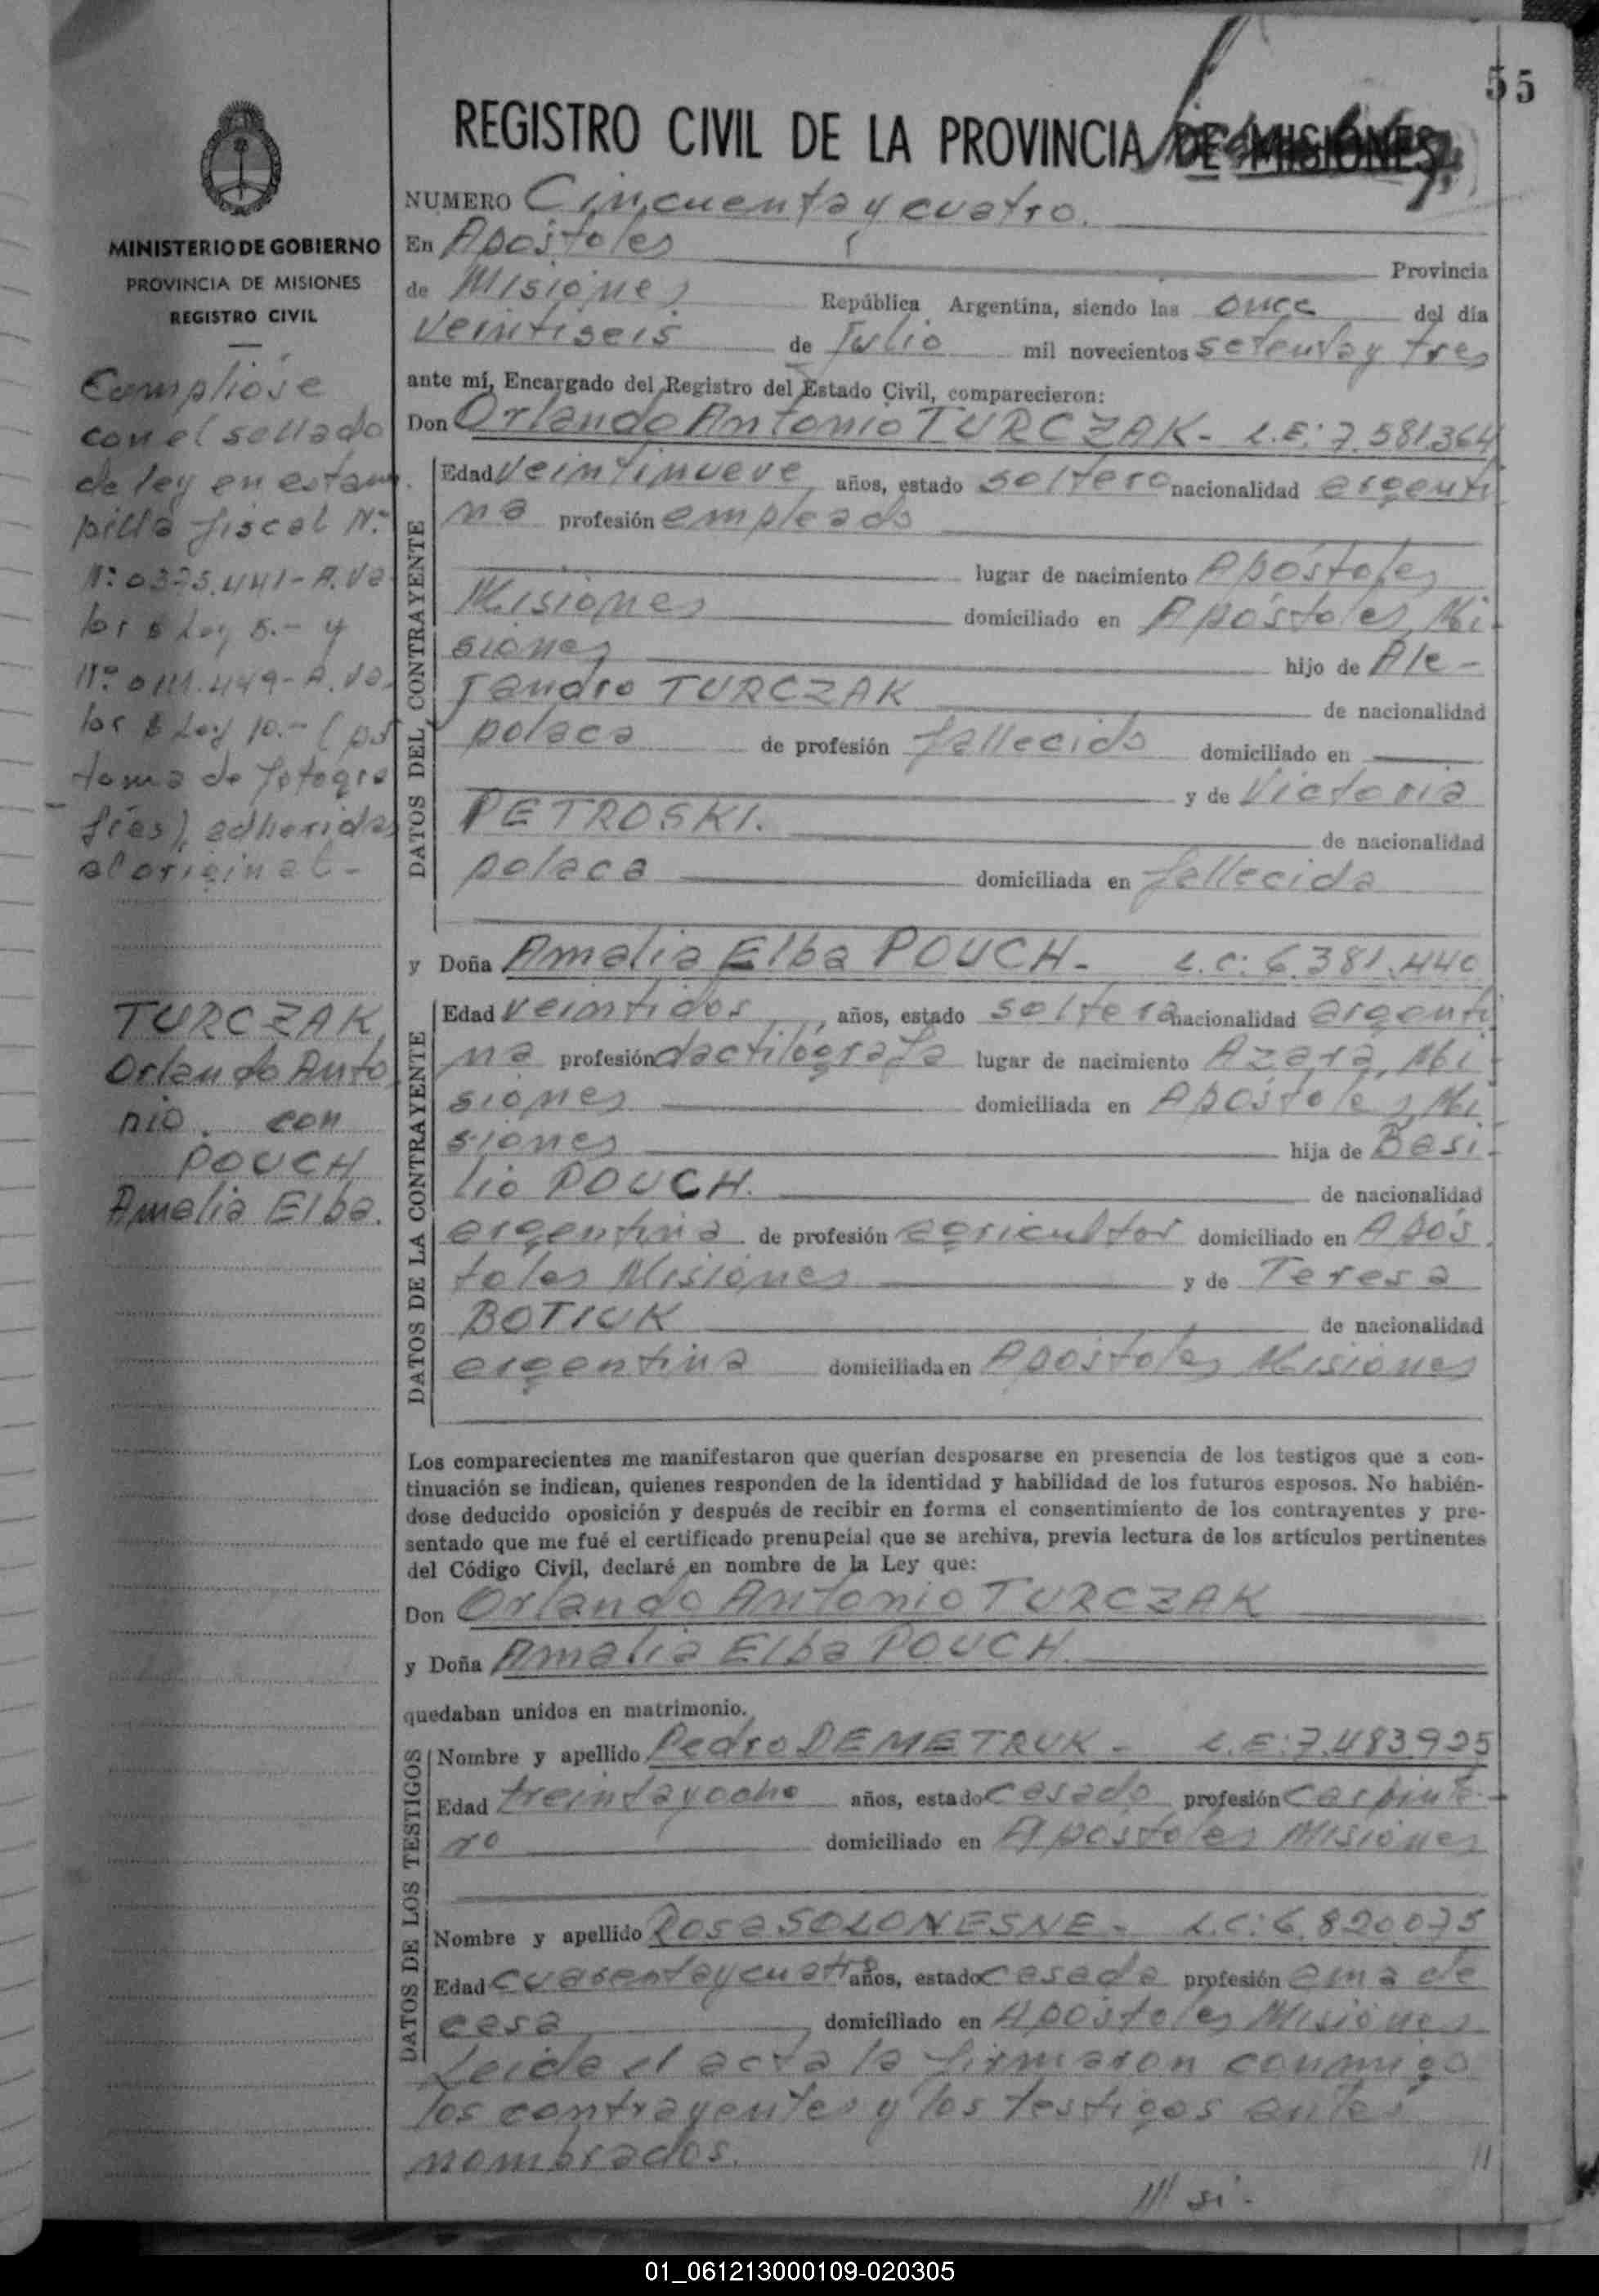 55
REGISTRO CIVIL DE LA PROVINCIA DE MISIONES
NUMERO Cincuenta y cuatro.
En Apóstoles Provincia
de Misiones República Argentina, siendo las once del día
veintiseis de Julio mil novecientos setenta y tres
ante mí, Encargado del Registro del Estado Civil, comparecieron:
Don Orlando Antonio TURCZAK- L.E: 7.581.364
DATOS DEL CONTRAYENTE
Edad veintinueve años, estado soltero nacionalidad argenti
na profesión empleado
lugar de nacimiento Apóstoles
Misiones domiciliado en Apóstoles, Mi-
siones hijo de Ale-
jandro TURCZAK de nacionalidad
polaca de profesión fallecido domiciliado en
y de Victoria
PETROSKI. de nacionalidad
polaca domiciliada en fallecida
y Doña Amalia Elba POUCH- L.C: 6.381.440
DATOS DE LA CONTRAYENTE
Edad veintidos, años, estado soltera nacionalidad argenti
na profesión dactilógrafa lugar de nacimiento Azara, Mi-
siones domiciliada en Apóstoles, Mi
siones hija de Basi-
lio POUCH. de nacionalidad
argentina de profesión agricultor domiciliado en Após
toles Misiones y de Teresa
BOTIUK de nacionalidad
argentina domiciliada en Apóstoles Misiones
Los comparecientes me manifestaron que querían desposarse en presencia de los testigos que a con-
tinuación se indican, quienes responden de la identidad y habilidad de los futuros esposos. No habién-
dose deducido oposición y después de recibir en forma el consentimiento de los contrayentes y pre-
sentado que me fué el certificado prenupcial que se archiva, previa lectura de los artículos pertinentes
del Código Civil, declaré en nombre de la Ley que:
Don Orlando Antonio TURCZAK
y Doña Amalia Elba POUCH.
quedaban unidos en matrimonio.
DATOS DE LOS TESTIGOS
Nombre y apellido Pedro DEMETRUK- L.E: 7.483.925
Edad treinta y ocho años, estado casado profesión carpinte-
ro domiciliado en Apóstoles Misiones
Nombre y apellido Rosa SOLONESNE- L.C: 6.820.075
Edad cuarenta y cuatro años, estado casada profesión ama de
casa domiciliado en Apóstoles Misiones
Leida el acta la firmaron conmigo
los contrayentes y los testigos antes
nombrados. //
/// si-
MINISTERIO DE GOBIERNO
PROVINCIA DE MISIONES
REGISTRO CIVIL
Cumplióse
con el sellado
de ley en estam
pilla fiscal N°
N: 0375.441-A. Va
lor $ Ley 5.- y
N° 0111.449-A. Va
lor $ Ley 10.- (
toma de fotogra
fías), adheridas
al original-
TURCZAK
Orlando Anto
nio. con
POUCH
Amalia Elba.
01_061213000109-020305